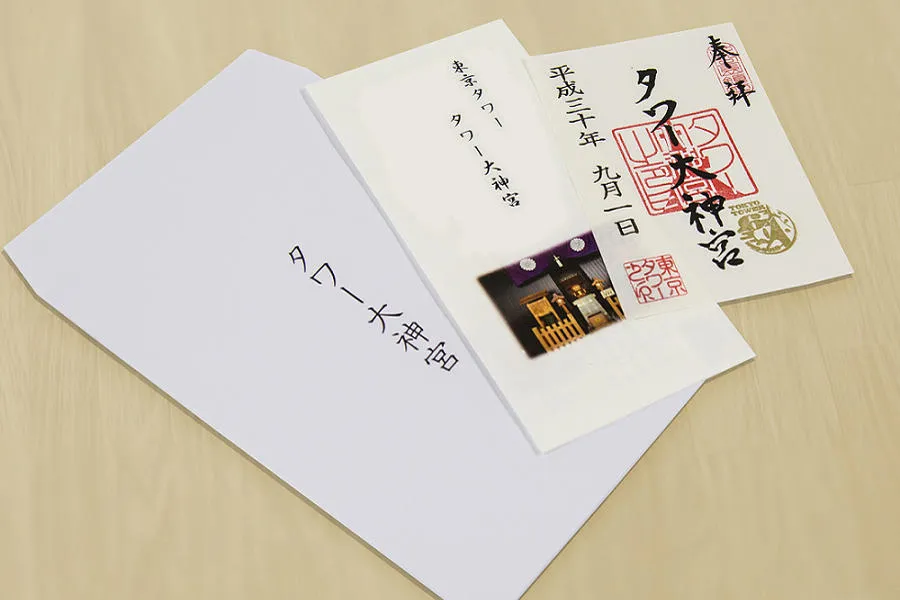 奉拝
タワー大神宮
平成三十年 九月一日
TOKYO
TOWER
東京
タワー
東京タワー
タワー大神宮
タワー大神宮